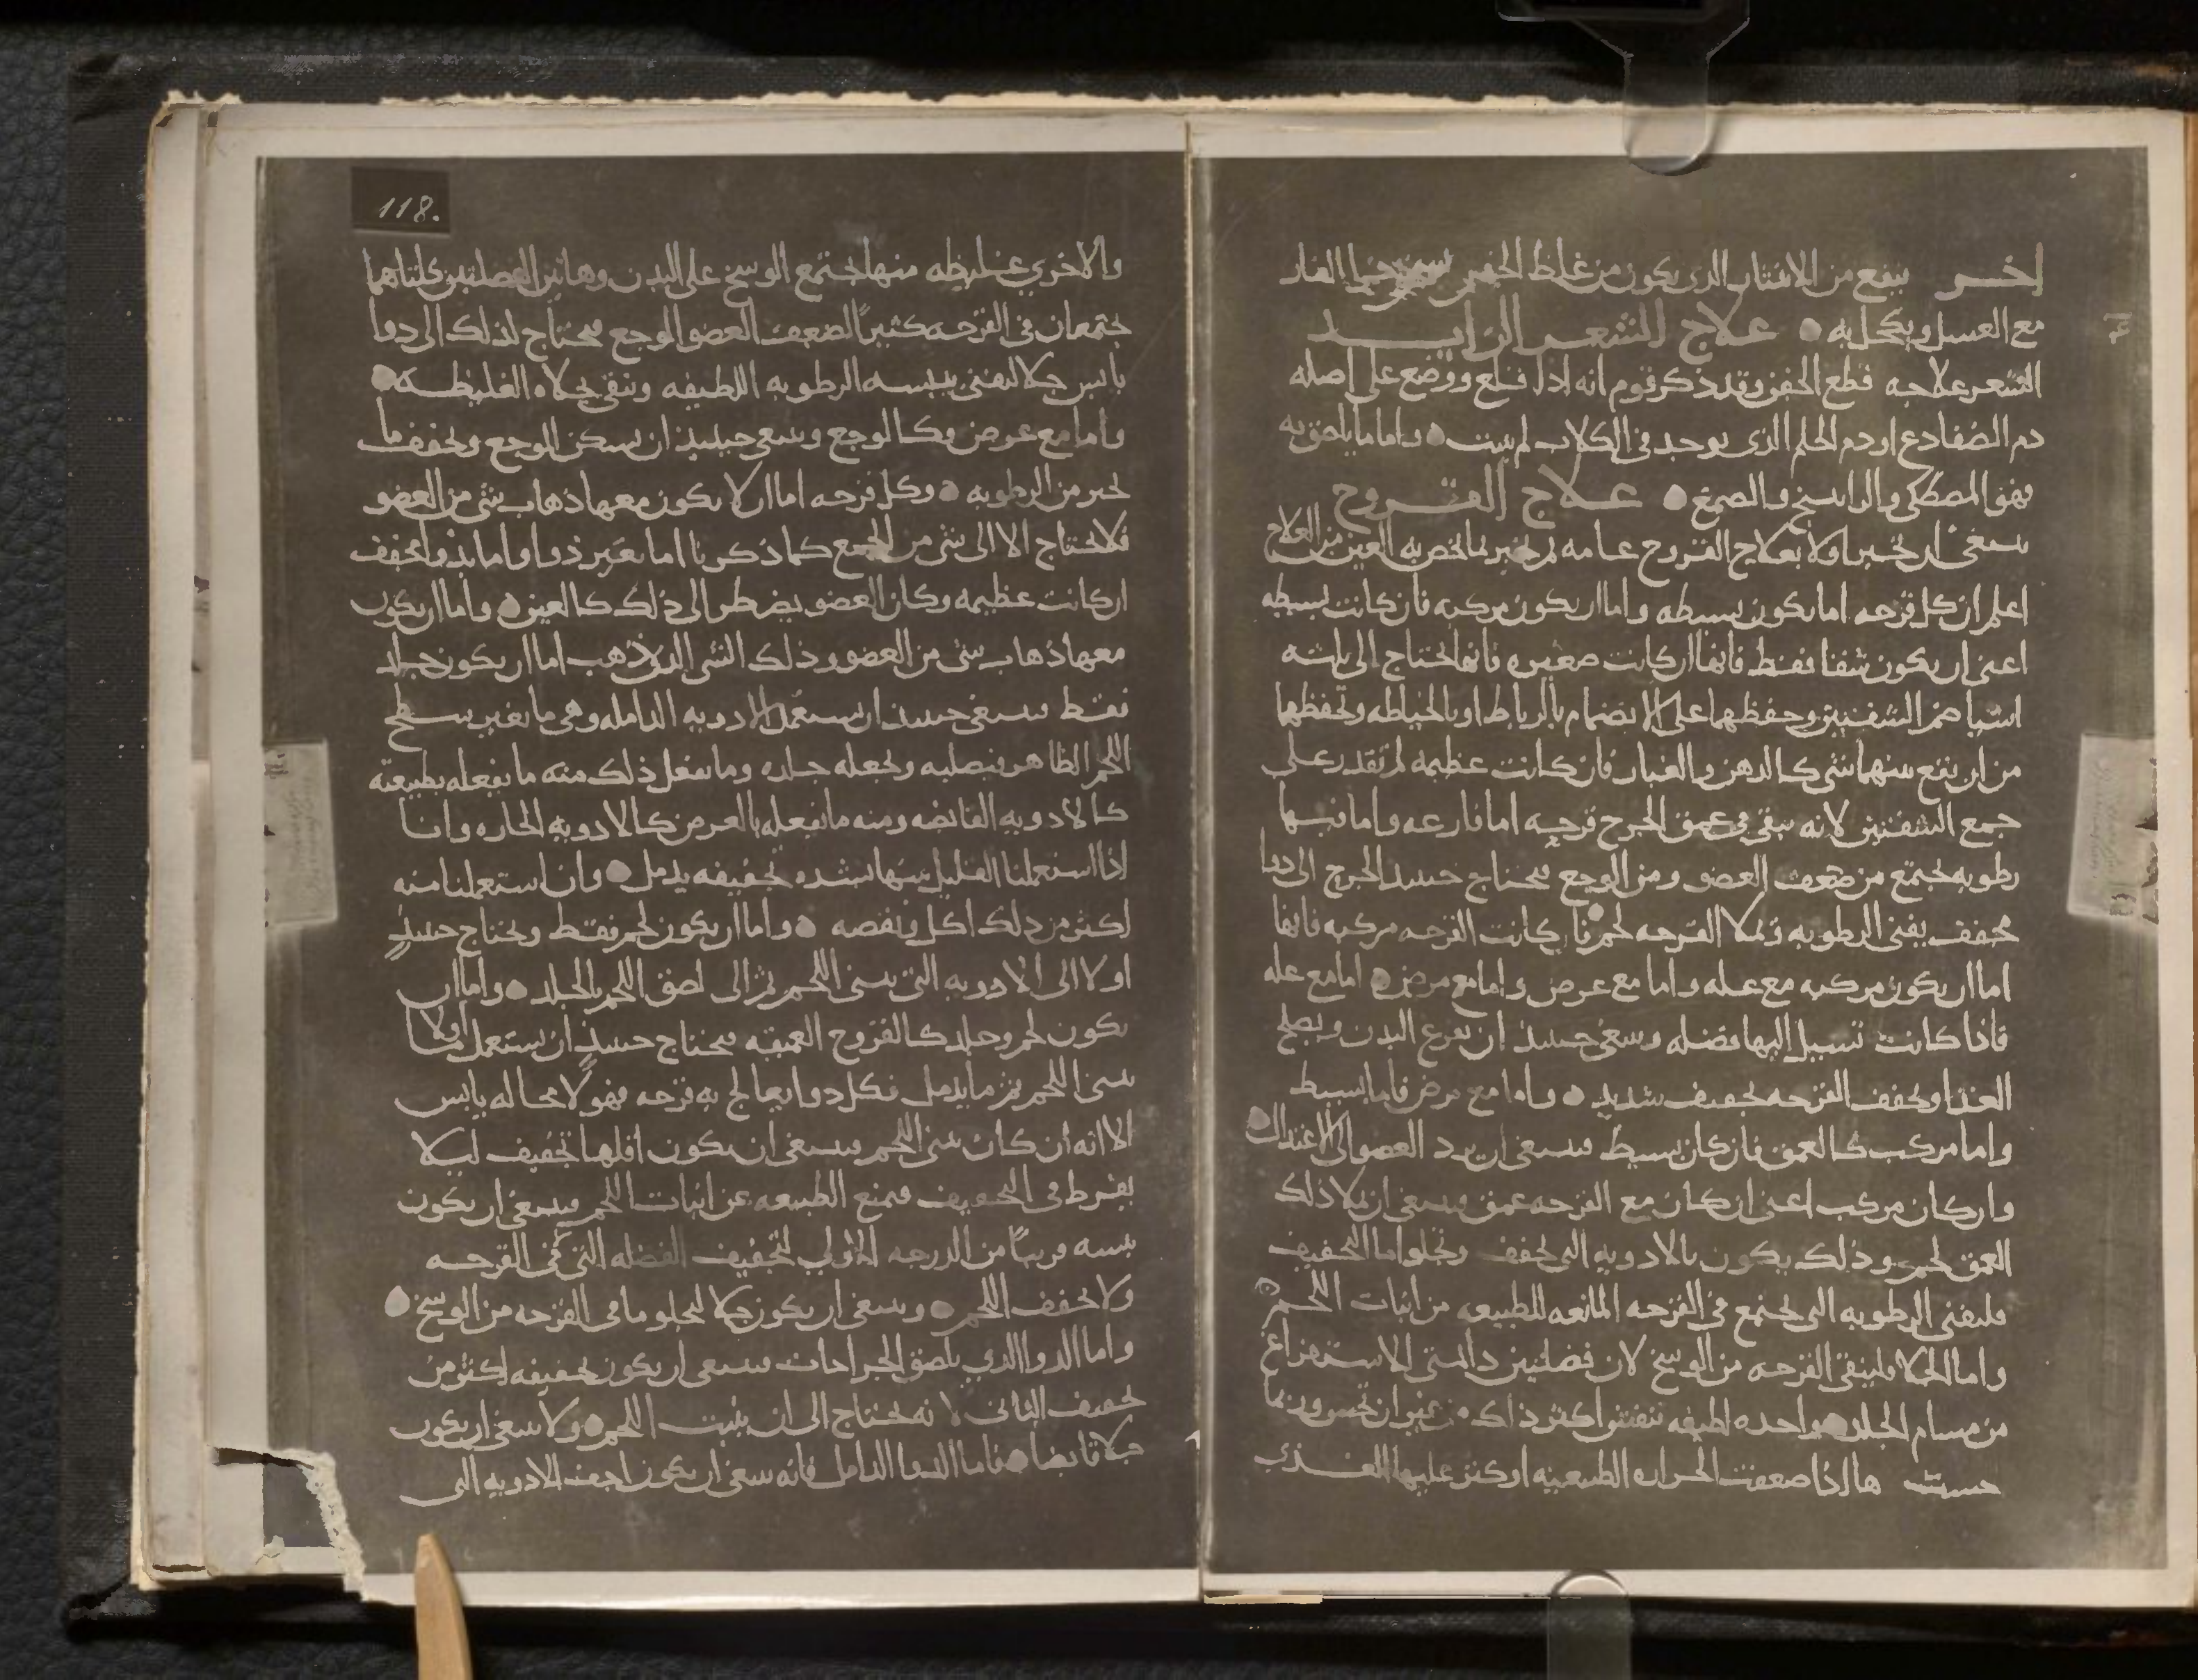 اخر ينفع من الانتثار الذي يكون من غلظ الجفن خرا الفار
مع العسل ويكحل به علاج الشعر الزايد
الشعر علاجه قطع الجفن وقد ذكر قوم انه اذا قلع ووضع على اصله
دم الضفادع او دم الحلم الذي يوجد في الكلاب لم ينبت واما ما يلصق به
فهو المصطكى والراتينج والصمغ علاج القروح
ينبغي ان نخبر اولا بعلاج القروح عامه ثم نخبر بما تخص به العين من العلاج
اعلم ان كل قرحه اما تكون بسيطه واما ان تكون مركبه فان كانت بسيطه
اعني ان يكون شقا فقط فانها ان كانت صغيره فانها تحتاج الى ثلثه
اشيا ضم الشفتين وحفظهما على الانضمام بالرباط او بالخياطه وتحفظها
من ان يقع بينهما شي كالدهن والغبار فان كانت عظيمه لم تقدر على
جمع الشفتين لانه يبقى في عمق الجرح قرحه اما فارغه واما فيها
رطوبه تجتمع من ضعف العضو ومن الوجع فيحتاج حينيذ الجرح الى دوا
مجفف يفني الرطوبه ويملا القرحه لحم فان كانت القرحه مركبه فانها
اما ان يكون مركبه مع عله واما مع عرض واما مع مرض اما مع عله
فاذا كانت تسيل اليها فضله وينبغي حينيذ ان تفرغ البدن وتصلح
الغذا وتجفف القرحه تجفيف شديد واما مع مرض فاما بسيط
واما مركب كالعمق فان كان بسيط فينبغي ان يرد العضو الى الاعتدال
وان كان مركب اعني ان كان مع القرحه عمق فينبغي ان يملا ذلك
العمق لحم وذلك يكون بالادويه التي تجفف وتجلو اما التجفيف
فليفني الرطوبه التي تجتمع في القرحه المانعه للطبيعه من انبات اللحم
واما الجلا فلينقي القرحه من الوسخ لان فضلتين دايمتي الاستفراغ
من مسام الجلد واحده لطيفه تنفش اكثر ذلك من غير ان تحس وربما
حست بها اذا ضعفت الحراره الطبيعيه او كثر عليها الغذي
118.
والاخرى غليظه منها يجتمع الوسخ على البدن وهاتين الفضلتين كلتاهما
يجتمعان في القرحه كثيرا لضعف العضو الوجع فيحتاج لذلك الى دوا
يابس جلا ليفني بيبسه الرطوبه اللطيفه وينقي بجلاه الغليظه
واما مع عرض فكالوجع وينبغي حينيذ ان يسكن الوجع ويجفف ما
يجري من الرطوبه وكل قرحه اما ان لا يكون معها ذهاب شي من العضو
فلا تحتاج الا الى شي من الجمع كما ذكرنا اما بغير دوا واما بدوا مجفف
ان كانت عظيمه وكان العضو يضطر الى ذلك كالعين واما ان يكون
معها ذهاب شي من العضو وذلك الشي الذي ذهب اما ان يكون جلد
فقط فينبغي حينيذ ان يستعمل الادويه الدامله وهي ما يغير سطح
اللحم الظاهر فيصلبه ويجعله جلده وما يفعل ذلك منه ما يفعله بطبيعته
كالادويه القابضه ومنه ما يفعله بالعرض كالادويه الحاره وانا
اذا استعملنا القليل منها بشده تجفيفه يدمل وان استعملنا منه
اكثر من ذلك اكل ونقصه واما ان يكون لحم فقط ويحتاج حينيذ
اولا الى الادويه التي تنبت اللحم ثم الى لصق اللحم بالجلد واما ان
يكون لحم وجلد كالقروح العميقه فيحتاج حينيذ ان يستعمل اولا ما
ينبت اللحم ثم ما يدمل فكل دوا يعالج به قرحه فهو لا محاله يابس
الا انه ان كان ينبت اللحم فينبغي ان يكون اقلها تجفيف ليلا
يفرط في التجفيف فيمنع الطبيعه عن انبات اللحم فينبغي ان يكون
يبسه قريبا من الدرجه الاولى لتجفيف الفضله التي في القرحه
ولا يجفف اللحم وينبغي ان يكون جلا ليجلو ما في القرحه من الوسخ
واما الدوا الذي يلصق الجراحات فينبغي ان يكون تجفيفه اكثر من
تجفيف الثاني لانه يحتاج الى ان ينبت اللحم ولا ينبغي ان يكون
جلا قابضا فاما الدوا الدامل فانه ينبغي ان يكون اجفف الادويه التي